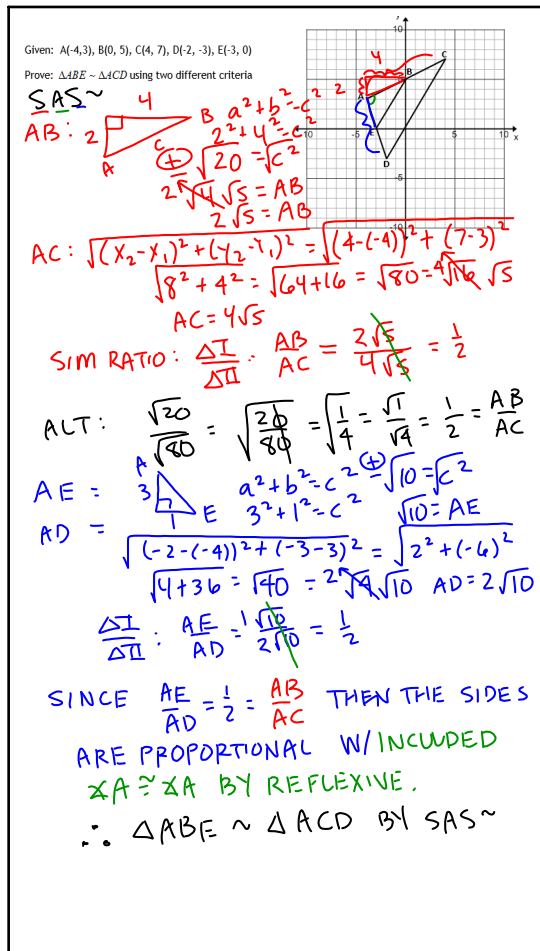 Given: A(-4,3), B(0, 5), C(4, 7), D(-2, -3), E(-3, 0)
Prove: ΔABE ~ ΔACD using two different criteria
SAS~
AB: 2 4 A B C
a² + b² = c²
2² + 4² = c²
± √20 = √c²
2 √4 √5 = AB
2√5 = AB
10 y C B A E D -10 -5 5 10 x -5 -10 4 2 3
AC: √(x₂-x₁)² + (y₂-y₁)² = √(4-(-4))² + (7-3)²
√8² + 4² = √64+16 = √80 = 4 √16 √5
AC = 4√5
SIM RATIO: ΔI/ΔII : AB/AC = 2√5/4√5 = 1/2
ALT: √20/√80 = √20/80 = √1/4 = √1/√4 = 1/2 = AB/AC
AE = A 3 1 E a² + b² = c² ± √10 = √c²
3² + 1² = c² √10 = AE
AD = √(-2-(-4))² + (-3-3)² = √2² + (-6)²
√4+36 = √40 = 2 √4 √10 AD = 2√10
ΔI/ΔII : AE/AD = 1√10/2√10 = 1/2
SINCE AE/AD = 1/2 = AB/AC THEN THE SIDES
ARE PROPORTIONAL W/ INCLUDED
∡A ≅ ∡A BY REFLEXIVE.
∴ ΔABE ~ ΔACD BY SAS~